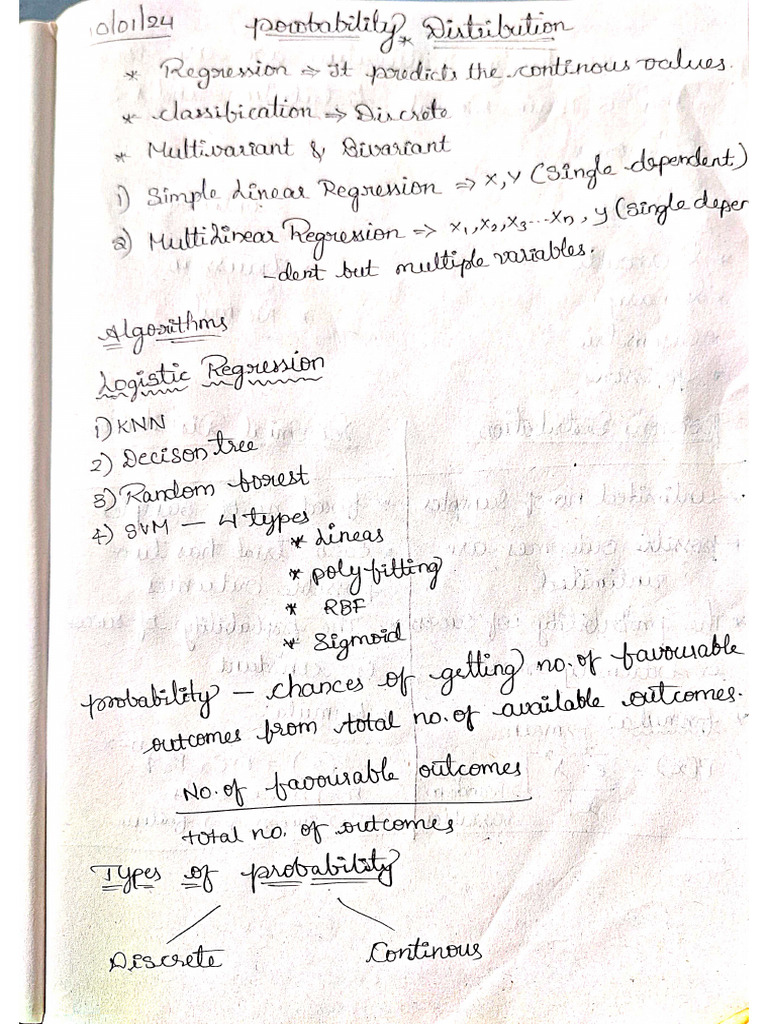 10/01/24 Porobability Distribution
* Regression => It predicts the continous values.
* Classification => Discrete
* Multivariant & Bivariant
1) Simple Linear Regression => X, Y (Single dependent)
2) MultiLinear Regression => x1, x2, x3...xn, y (single depen
-dent but multiple variables.
Algorithms
Logistic Regression
1) KNN
2) Decison tree
3) Random forest
4) SVM — 4 types
* Linear
* poly fitting
* RBF
* Sigmoid
probability — chances of getting no. of favourable
outcomes from total no. of available outcomes.
No. of favourable outcomes
total no. of outcomes
Types of probability
Discrete Continous